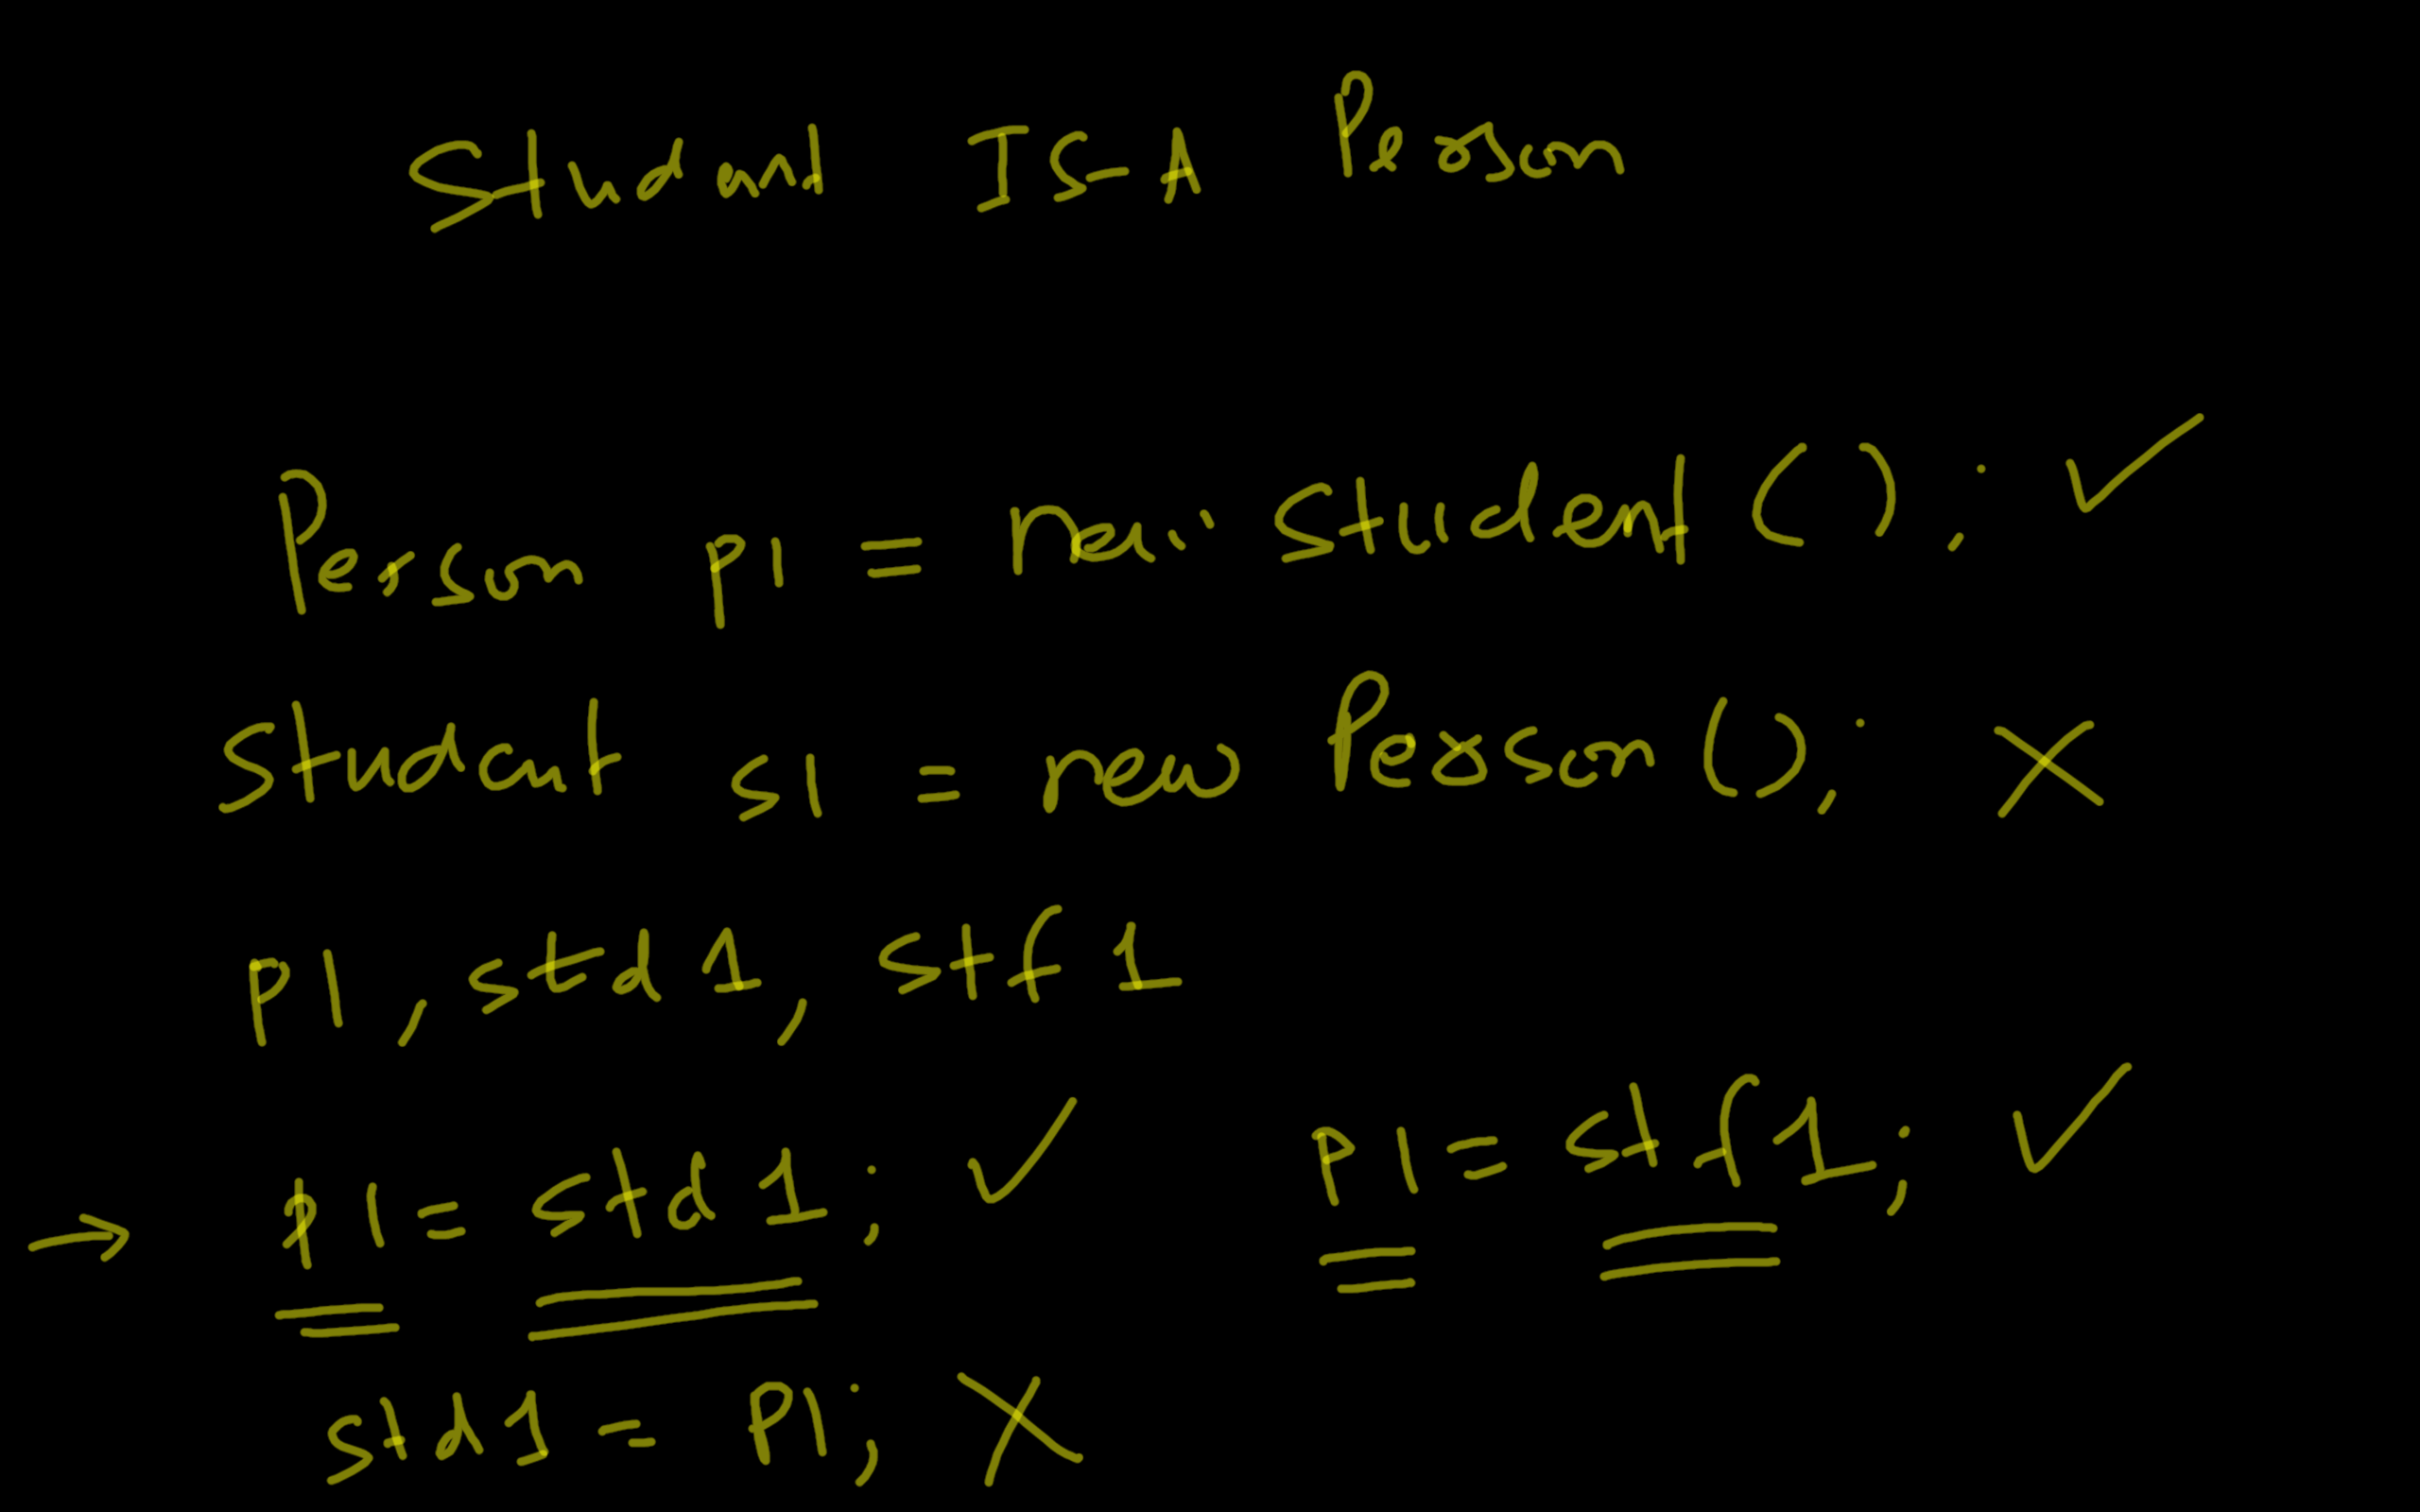 Student IS-A Person
Person p1 = new Student(); ✓
Student s1 = new Person(); ✗
p1, std1, stf1
→ p1 = std1; ✓ p1 = stf1; ✓
std1 = p1; ✗